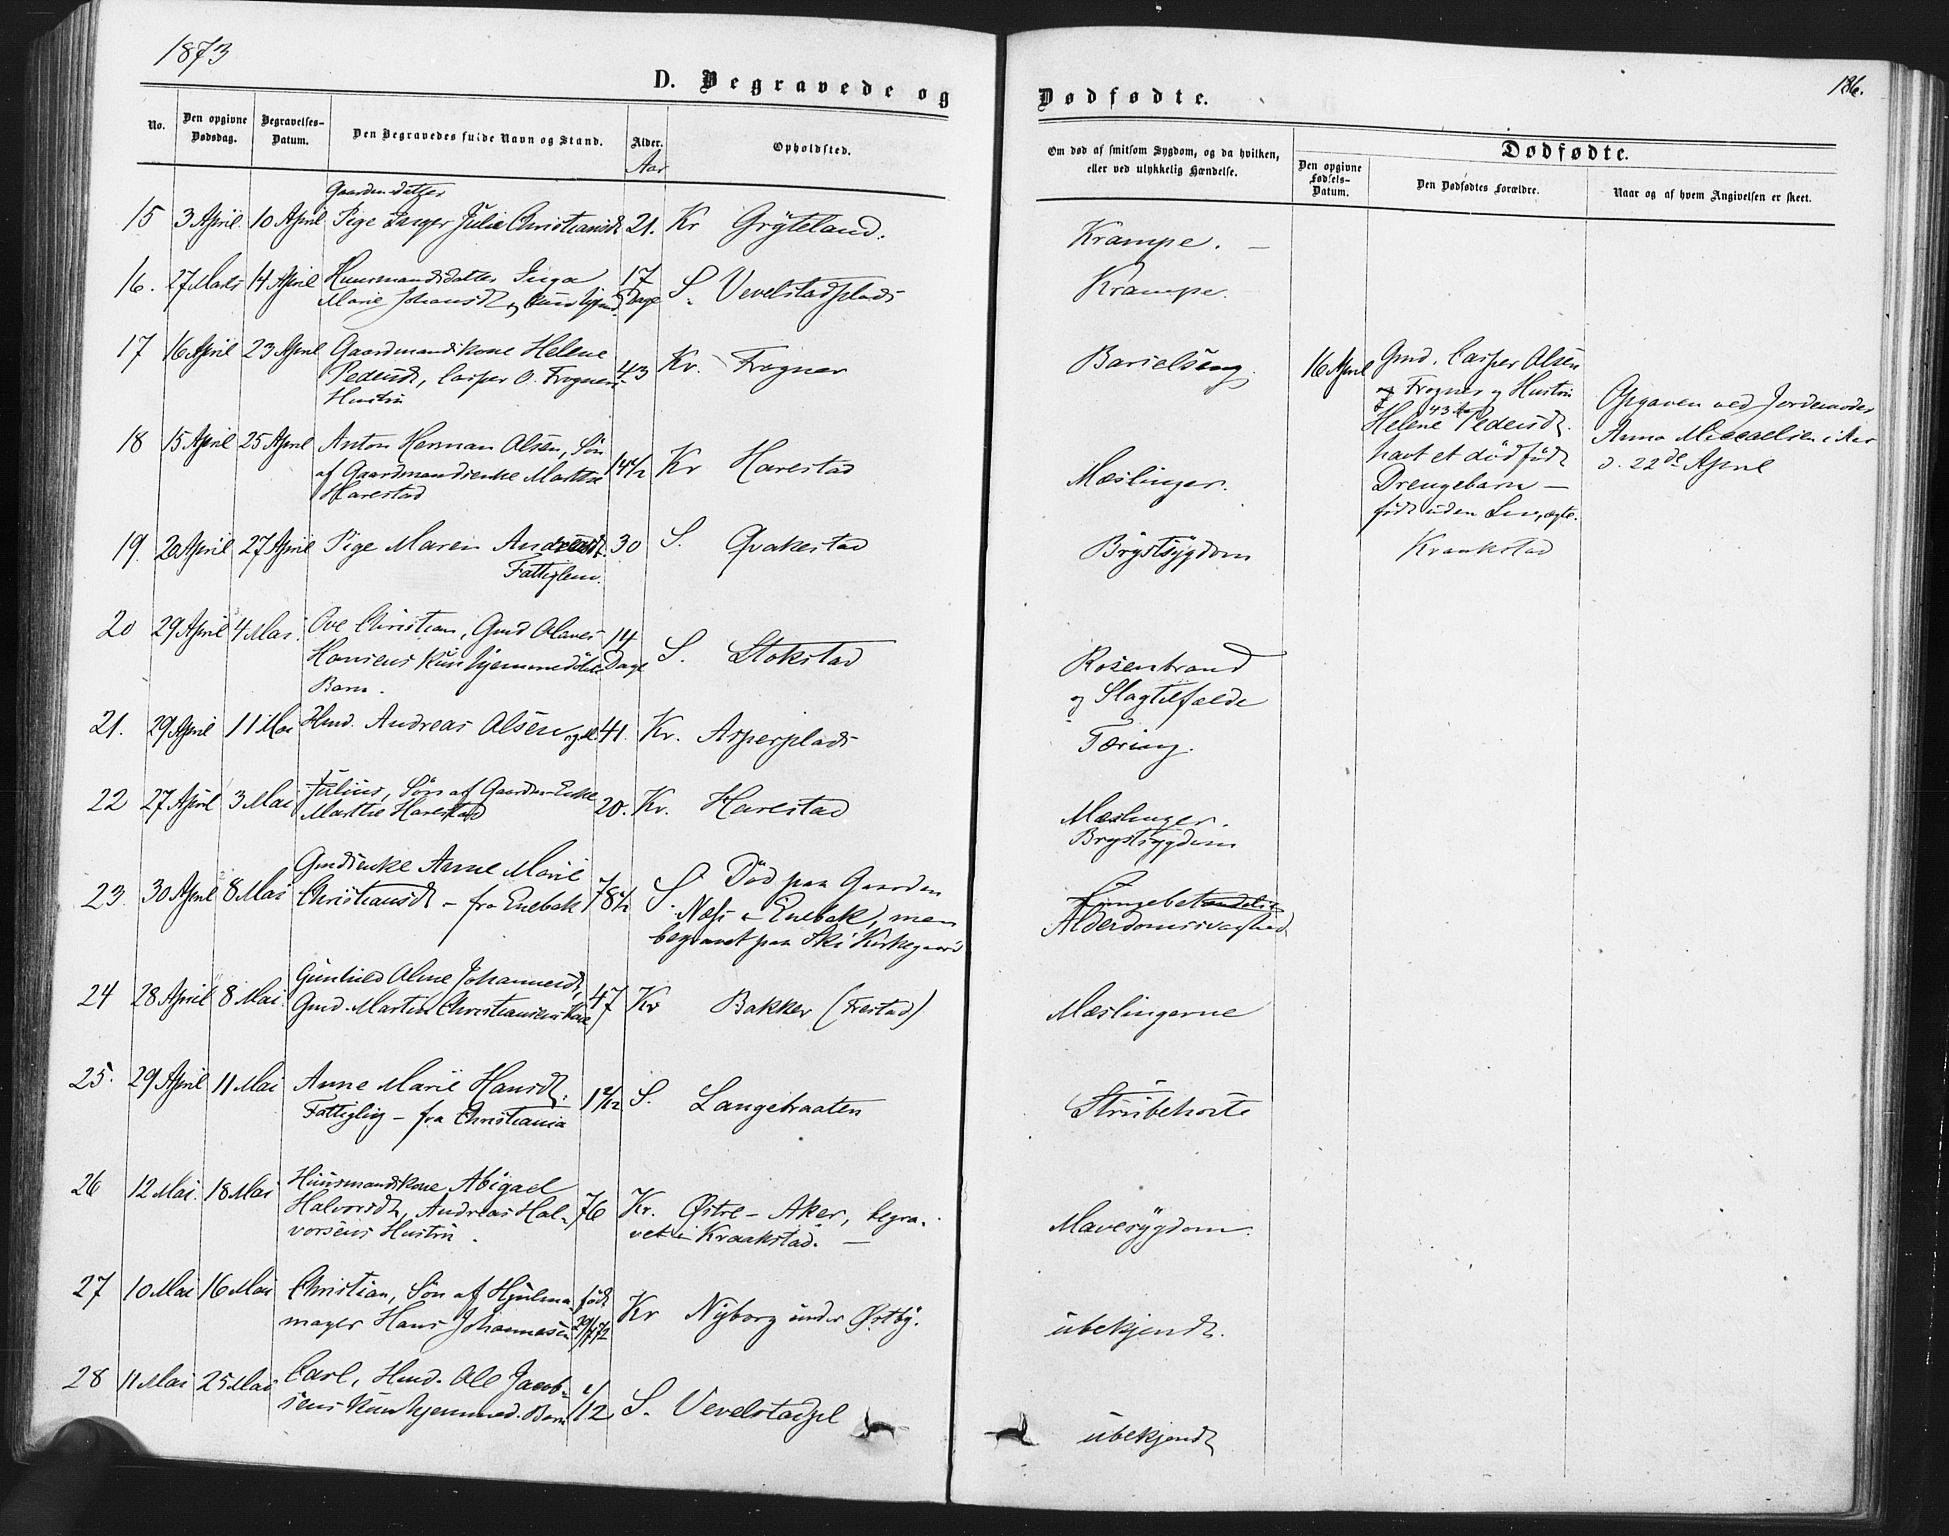 1873
D. Begravede og
Dødfødte.
186.
No.
Den opgivne Dødsdag.
Begravelses-Datum.
Den Begravedes fulde Navn og Stand.
Alder.
Aar
Opholdsted.
Om død af smitsom Sygdom, og da hvilken,
eller ved ulykkelig Hændelse.
Dødfødte.
Den opgivne Fødsels-Datum.
Den Dødfødtes Forældre.
Naar og af hvem Angivelsen er skeet.
Gaardm.datter
15 3 April 10 April Pige Inger Julie Christiansdt 21. Kr Gryteland. Krampe. –
16. 27 Marts 14 April Huusmandsdatter Inga 17 S. Vevelstadplads Krampe.
Marie Johansdt Dage
17 16 April 23 April Gaardmandskone Helene 43 Kr. Frogner Barselseng.
Pedersdt, Casper O. Frogners
Hustru
16 April Gmd. Casper Olsen
Frogner og Hustru
43 Aar
Helene Pedersdt.
havt et dødfødt
Drengebarn –
født uden Liv, ægte.
Kraakstad
Opgaven ved Jordemoder
Anna Miccaelsen i Aas
d. 22de April
18 15 April 25 April Anton Herman Olsen, Søn 14 1/2 Kr Harestad Mæslinger.
af Gaardmandsenke Marthe
Harestad
19. 20 April 27 April Pige Maren Andreasdt. 30 S. Qvakestad Brystsygdom
Fattiglem.
20 29 April 4 Mai. Ove Christian, Gmd Olaves 14 Dage S. Stokstad Rosenbrand
Hansens kun hjemmedøbte og Slagtilfælde
Barn.
21. 29 April 11 Mai Hmd. Andreas Olsen 41. Kr. Asperplads Tæring.
22 27 April 3 Mai Julius, Søn af Gaardm.Enke 20. Kr. Harestad Mæslinger.
Marthe Harestad Brystsygdom
23. 30 April 8 Mai Gmdsenke Anne Marie 78 1/2 S. Død paa Gaarden
Christiansdt – fra Enebak Næs i Enebak, men
begravet paa Ski Kirkegaard
Alderdomssvaghed
24 28 April 8 Mai. Gunhild Oline Johannesdt, 47 Kr Bakker (Frestad) Mæslingerne
Gmd. Martin Christiansens Kone
25. 29 April 11 Mai Anne Marie Hansdt. 1 2/12 S. Langebraaten Strubehoste
Fattiglig – fra Christiania
26 12 Mai. 18 Mai Huusmandskone Abigael 76 Kr. Østre – Aker, begra- Mavesygdom.
Halvorsdt, Andreas Hal- vet i Kraakstad. –
vorsens Hustru.
27 10 Mai 16 Mai Christian, Søn af Hjulma- født Kr Nyborg under Østby. ubekjendt.
mager Hans Johannesen
28 11 Mai 25 Mai Carl, Hmd. Ole Jacob- 1/12 S. Vevelstadpl ubekjendt
sens kun hjemmed. Barn